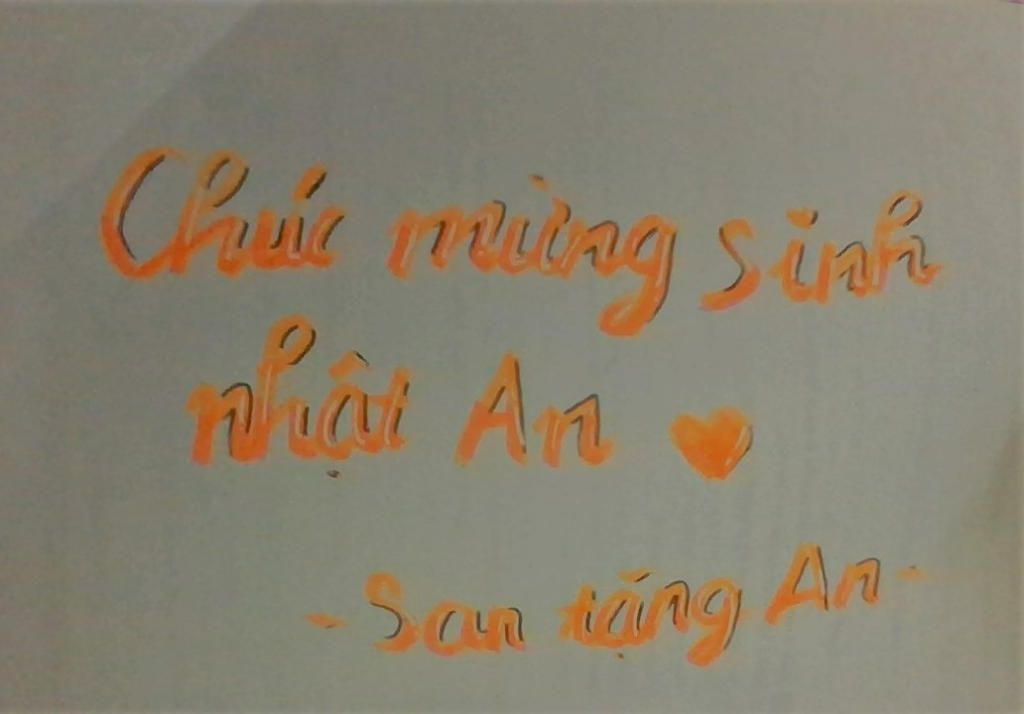 Chúc mừng sinh
nhật An
- San tặng An -